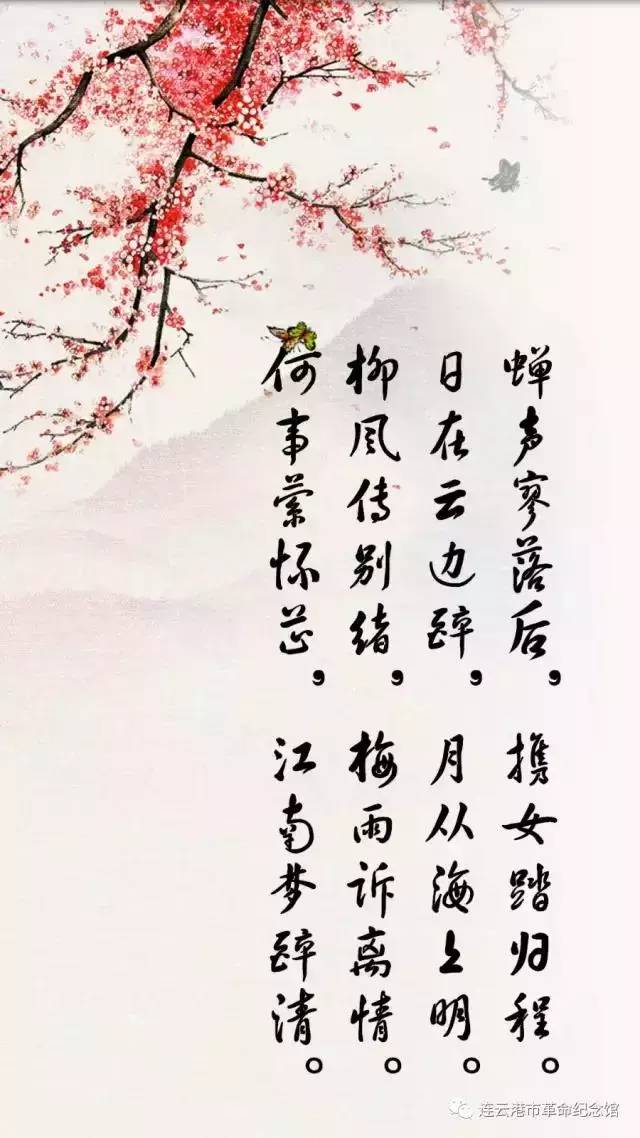 蝉声寥落后，携女踏归程。
日在云边醉，月从海上明。
柳风传别绪，梅雨诉离情。
何事萦怀芷，江南梦醉清。
连云港市革命纪念馆